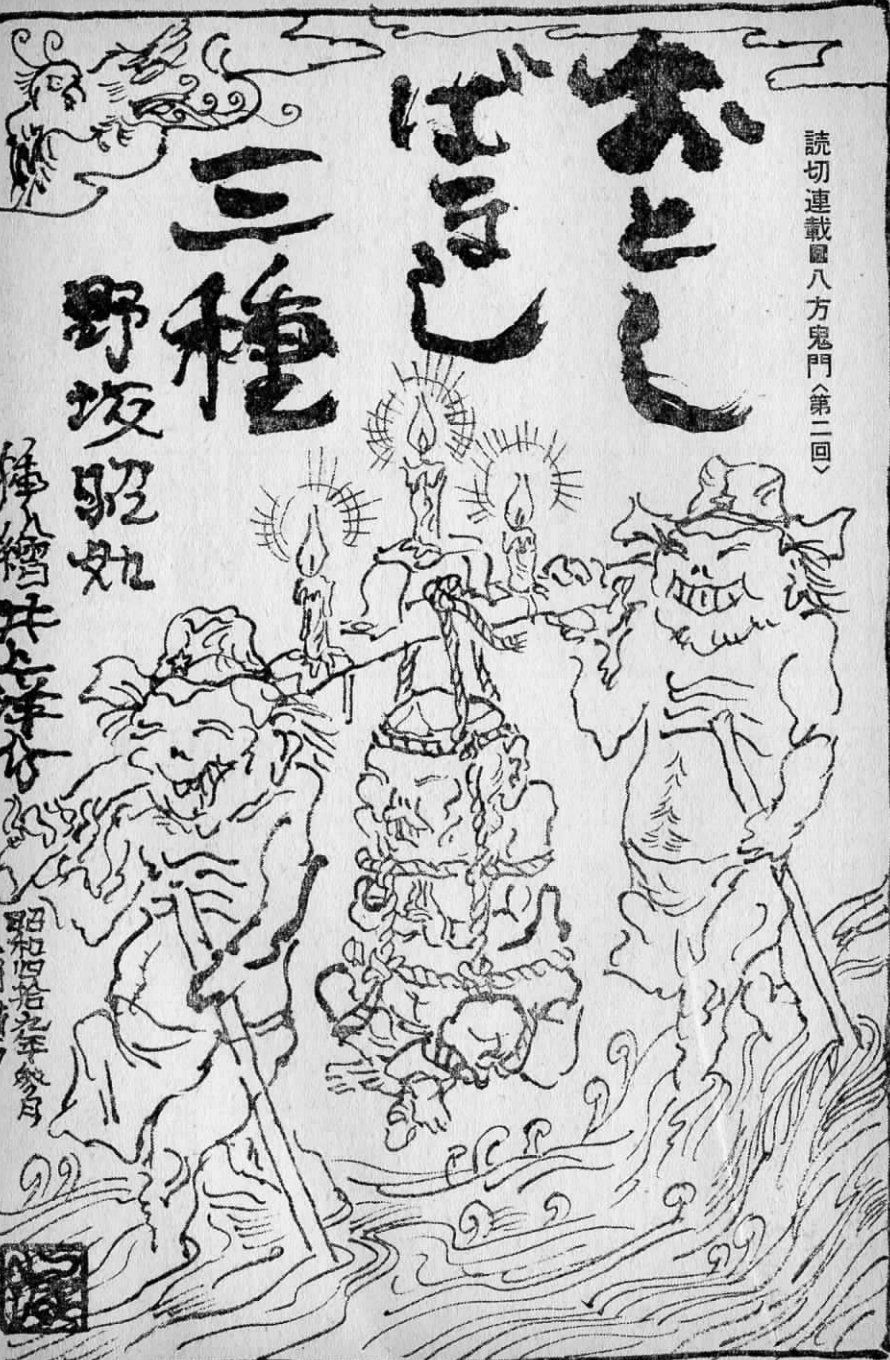 読切連載 八方鬼門〈第二回〉
おとし
ばなし
三種
野坂昭如
挿繪 井上洋介
昭和四拾九年